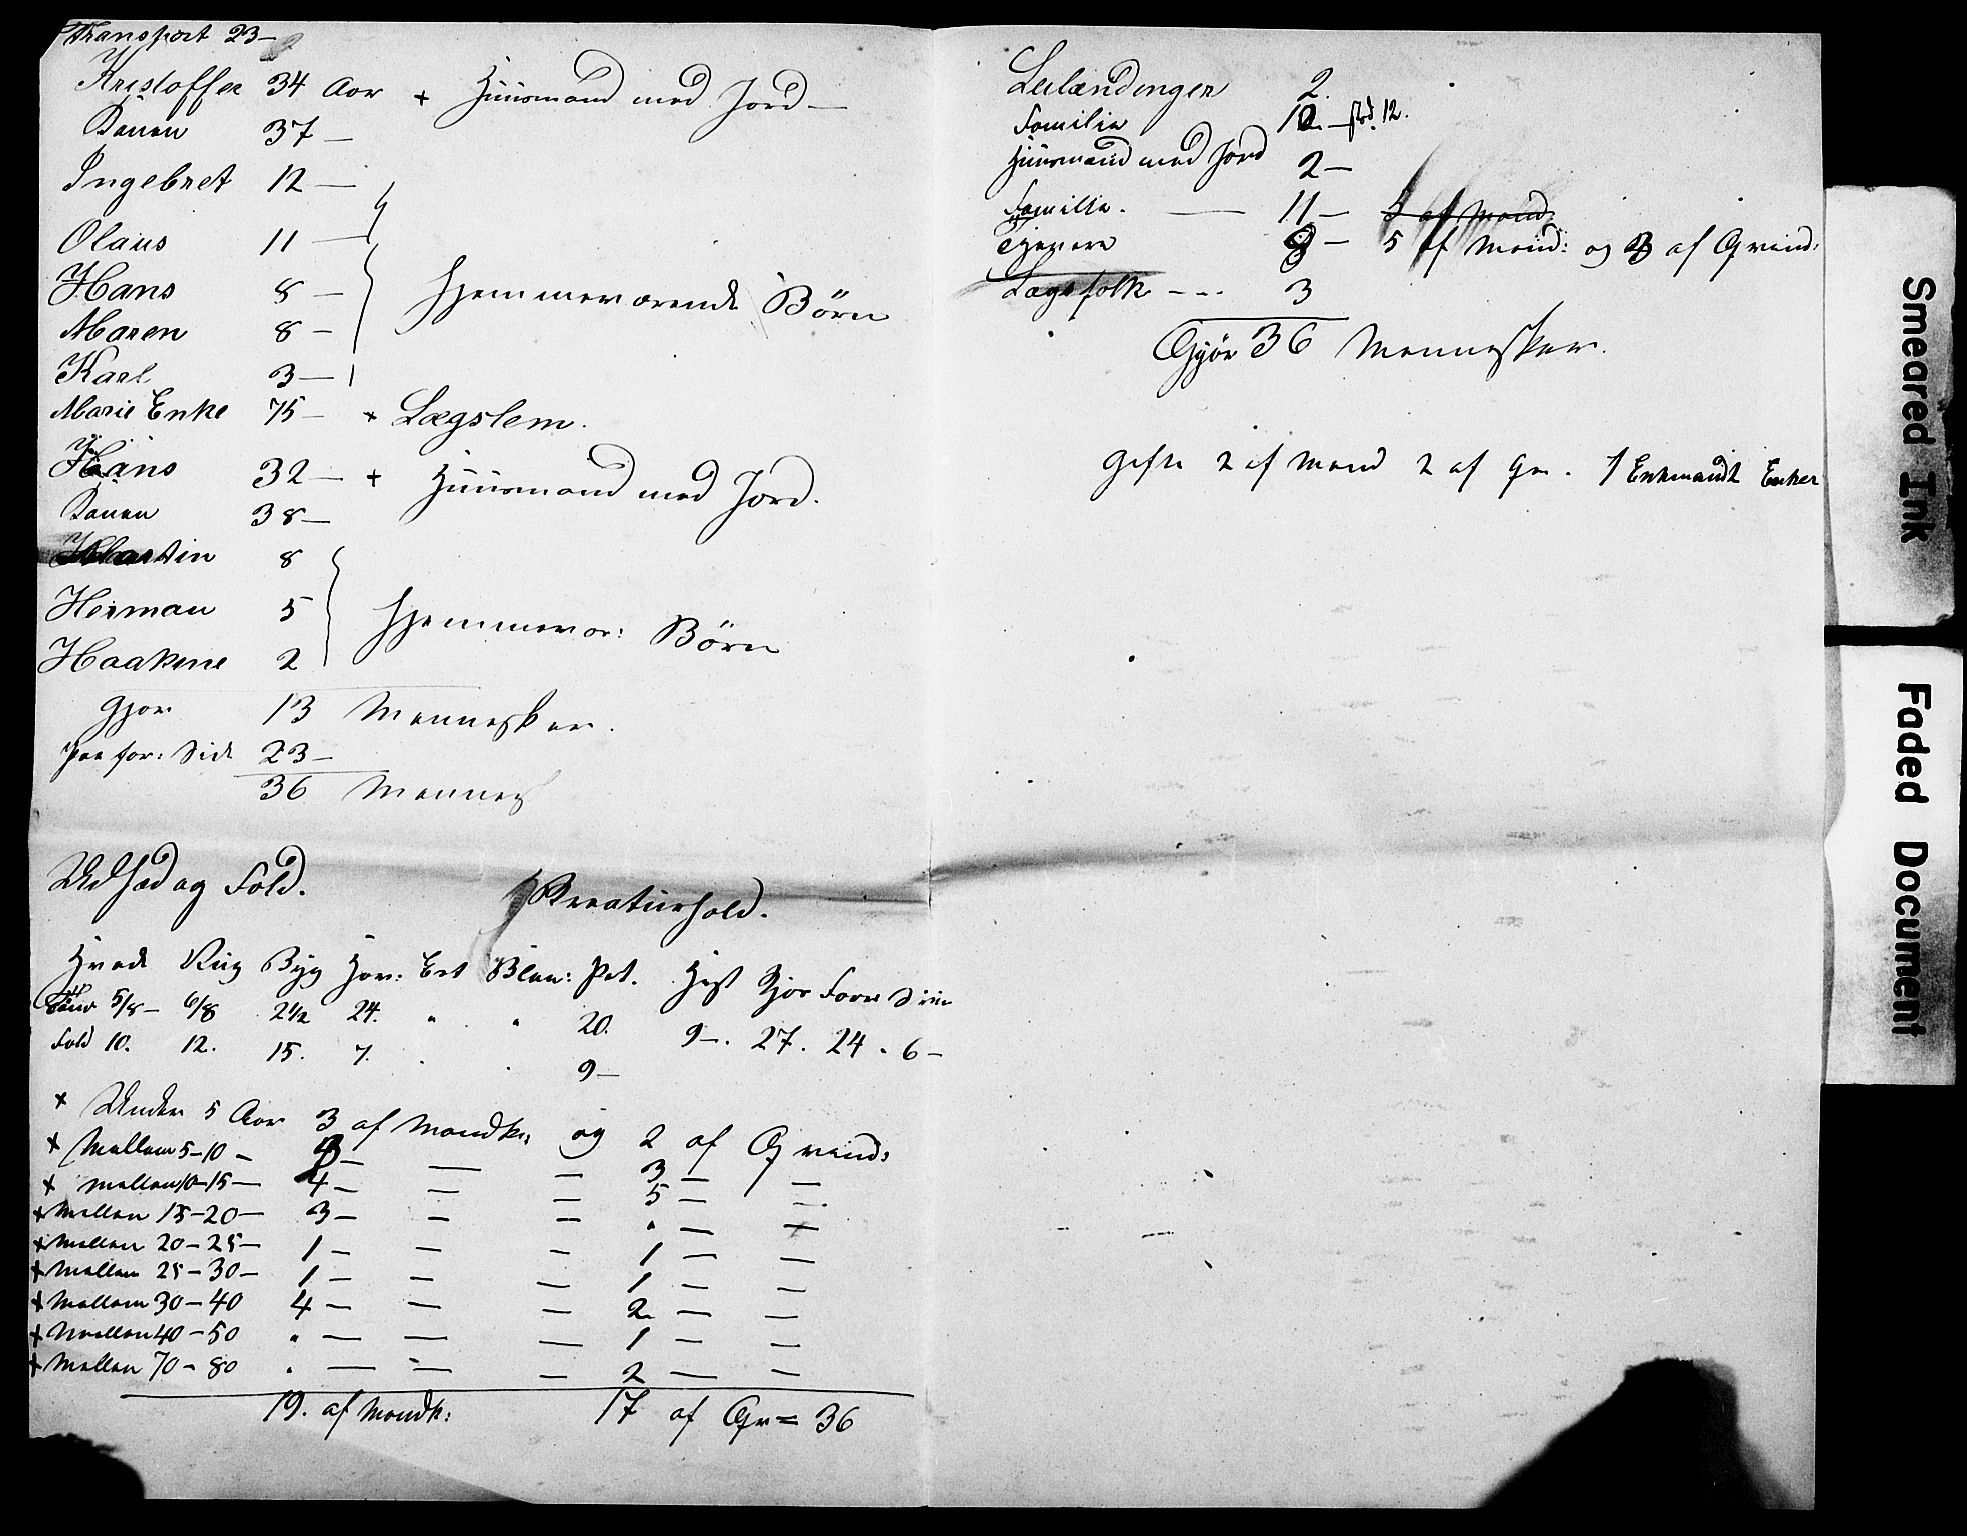 Transport 23 —
Kristoffer 34 Aar + Huusmand med Jord —
Konen 37 —
Ingebret 12 —
Olaus 11 —
Hans 8 —
Hjemmeværende Börn
Maren 8 —
Karl 3 —
Marie Enke 75 — + Lægslem.
Hans 32 — + Huusmand med Jord.
Konen 38 —
Martin 8
Herman 5
Hjemmevær: Börn
Haakene 2
Gjør 13 Mennesker.
Paa for: Side 23 —
36 Mennes
Udsæd og Fold.
Kreaturhold.
Hvede Rug Byg Hav: Ert Blan: Pot. Hest Kjør Faar Svin
5/8 — 6/8 2 1/2 24. " " 20. 9 —. 27. 24. 6 —
Fold 10. 12. 15. 7. 9 —
+ Under 5 Aar 3 af Mandk: og 2 af Qvind:
+ Mellem 5 — 10 — 3 — — — 3 — —
+ Mellem 10 — 15 — 4 — — — 5 — —
+ Mellem 15 — 20 — 3 — — — " — —
+ Mellem 20 — 25 — 1 — — — 1 — —
+ Mellem 25 — 30 — 1 — — — 1 — —
+ Mellem 30 — 40 4 — — — 2 — —
+ Mellem 40 — 50 " — — — 1 — —
+ Mellem 70 — 80 " — — — 2 — —
19. af Mandk: 17 af Qv = 36
Leilændinger 2.
Familie 12. — 12.
Huusmænd med Jord 2 —
Familie. — 11 — 5 af Mand:
Tjenere — 5 af Mand: og 3 af Qvind:
Lægsfolk — — — 3
Gjör 36 Mennesker.
Gifte 2 af Mand 2 af Qv. 1 Enkemand 2 Enker
Smeared Ink
Faded Document